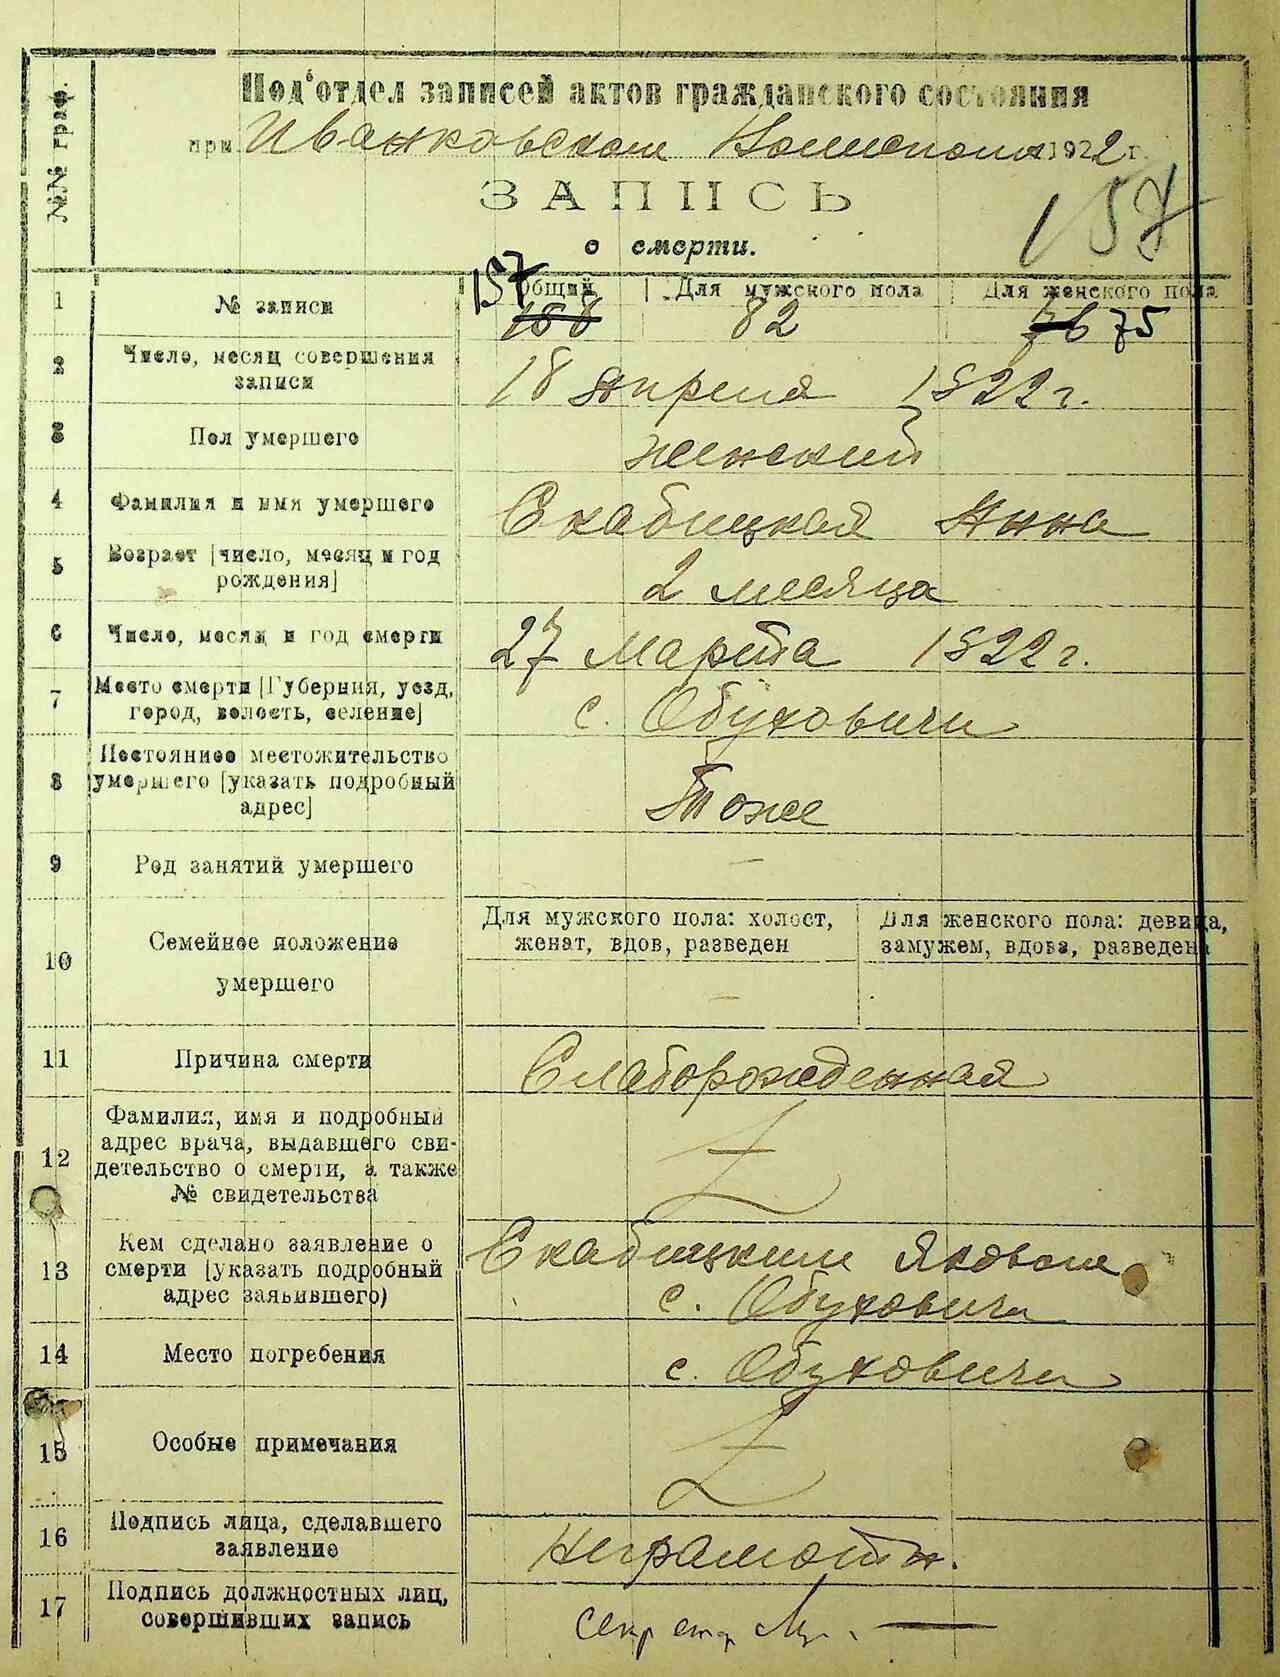 №№ граф.
Под'отдел записей актов гражданского состояния
при Иванковском 1922 г.
ЗАПИСЬ
о смерти.
157
1
№ записи
Общий
Для мужского пола
Для женского пола
157
158
82
76 75
2
Число, месяц совершения
записи
18 апреля 1922 г.
3
Пол умершего
женский
4
Фамилия и имя умершего
Скабицкая Анна
5
Возраст [число, месяц и год
рождения]
2 месяца
6
Число, месяц и год смерти
27 Марта 1922 г.
7
Место смерти [Губерния, уезд,
город, волость, селение]
с. Обуховичи
8
Постоянное местожительство
умершего [указать подробный
адрес]
Тоже
9
Род занятий умершего
—
10
Семейное положение
умершего
Для мужского пола: холост,
женат, вдов, разведен
Для женского пола: девица,
замужем, вдова, разведена
—
11
Причина смерти
Слаборожденная
12
Фамилия, имя и подробный
адрес врача, выдавшего сви-
детельство о смерти, а также
№ свидетельства
13
Кем сделано заявление о
смерти [указать подробный
адрес заявившего)
Скабицким Яковом
с. Обуховичи
14
Место погребения
с. Обуховичи
15
Особые примечания
16
Подпись лица, сделавшего
заявление
Неграмотн.
17
Подпись должностных лиц,
совершивших запись